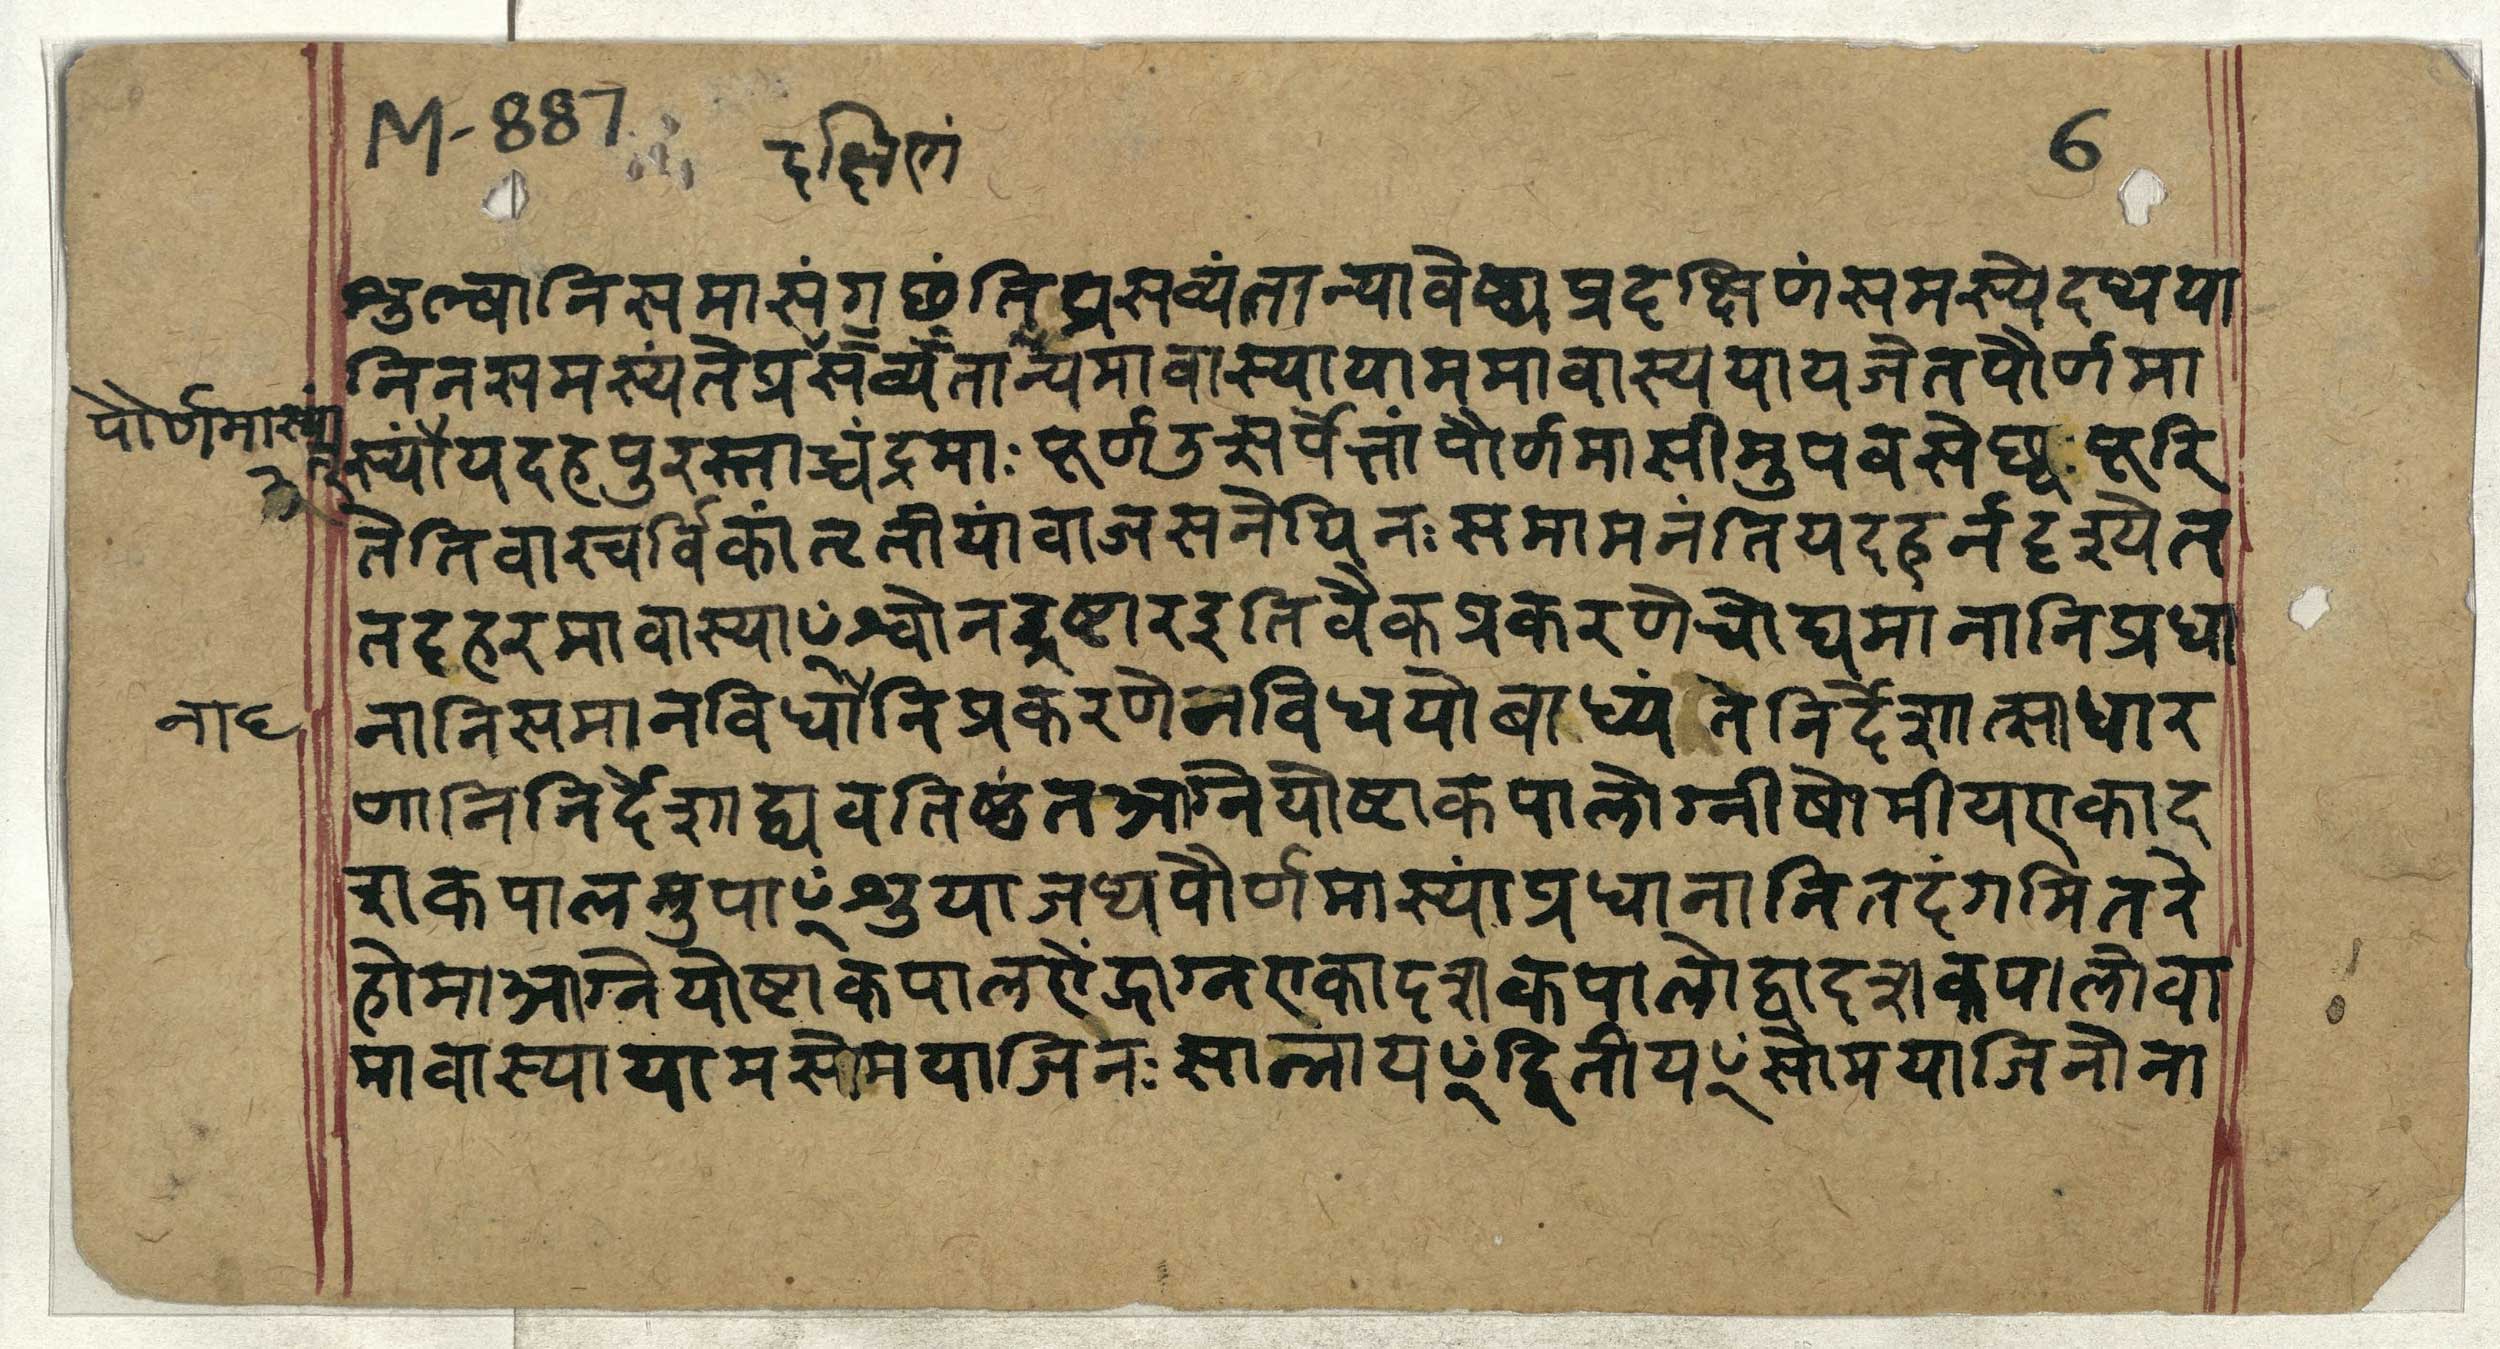 M-887
6
दक्षिणं
शुल्बानिसमासंगछंतिप्रसव्यंतान्यावेष्ट्यप्रदक्षिणंसमस्येदथया
निनसमस्यंतेप्रसव्यंतान्यमावास्यायाममावास्ययायजेतपौर्णमा
पौर्णमास्यां
स्यांयदहपुरस्ताच्चंद्रमाःपूर्णउत्सर्पेत्तांपौर्णमासीमुपवसेछ्वःपूरि
तेतिवाखर्विकांतृतीयांवाजसनेयिनःसमामनंतियदहर्नदृश्येत
तदहरमावास्याꣳश्वोनद्रष्टारइतिवैकप्रकरणेचोद्यमानानिप्रधा
नाध
नानिसमानविधानिप्रकरणेनविधयोबाध्यंतेनिर्देशात्साधार
णानिनिर्देशाद्व्यवतिष्ठंतआग्नेयोष्टाकपालोग्नीषोमीयएकाद
शाकपालमुपाꣳशुयाजश्चपौर्णमास्यांप्रधानानितदंगमितरे
होमाआग्नेयोष्टाकपालऐंद्राग्नएकादशाकपालोद्वादशाकपालोवा
मावास्यायामसोमयाजिनःसान्नाय्यꣳद्वितीयꣳसोमयाजिनोना